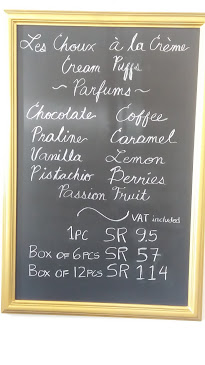 Les Choux à la Crème
Cream Puffs
~ Parfums ~
Chocolate Coffee
Praline Caramel
Vanilla Lemon
Pistachio Berries
Passion Fruit
VAT included
1PC SR 9.5
Box of 6PCS SR 57
Box of 12PCS SR 114